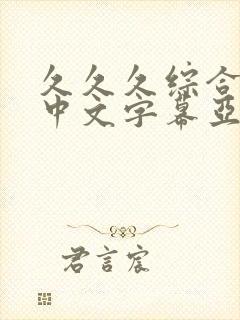 久久久综合
中文字幕亚
君言宸